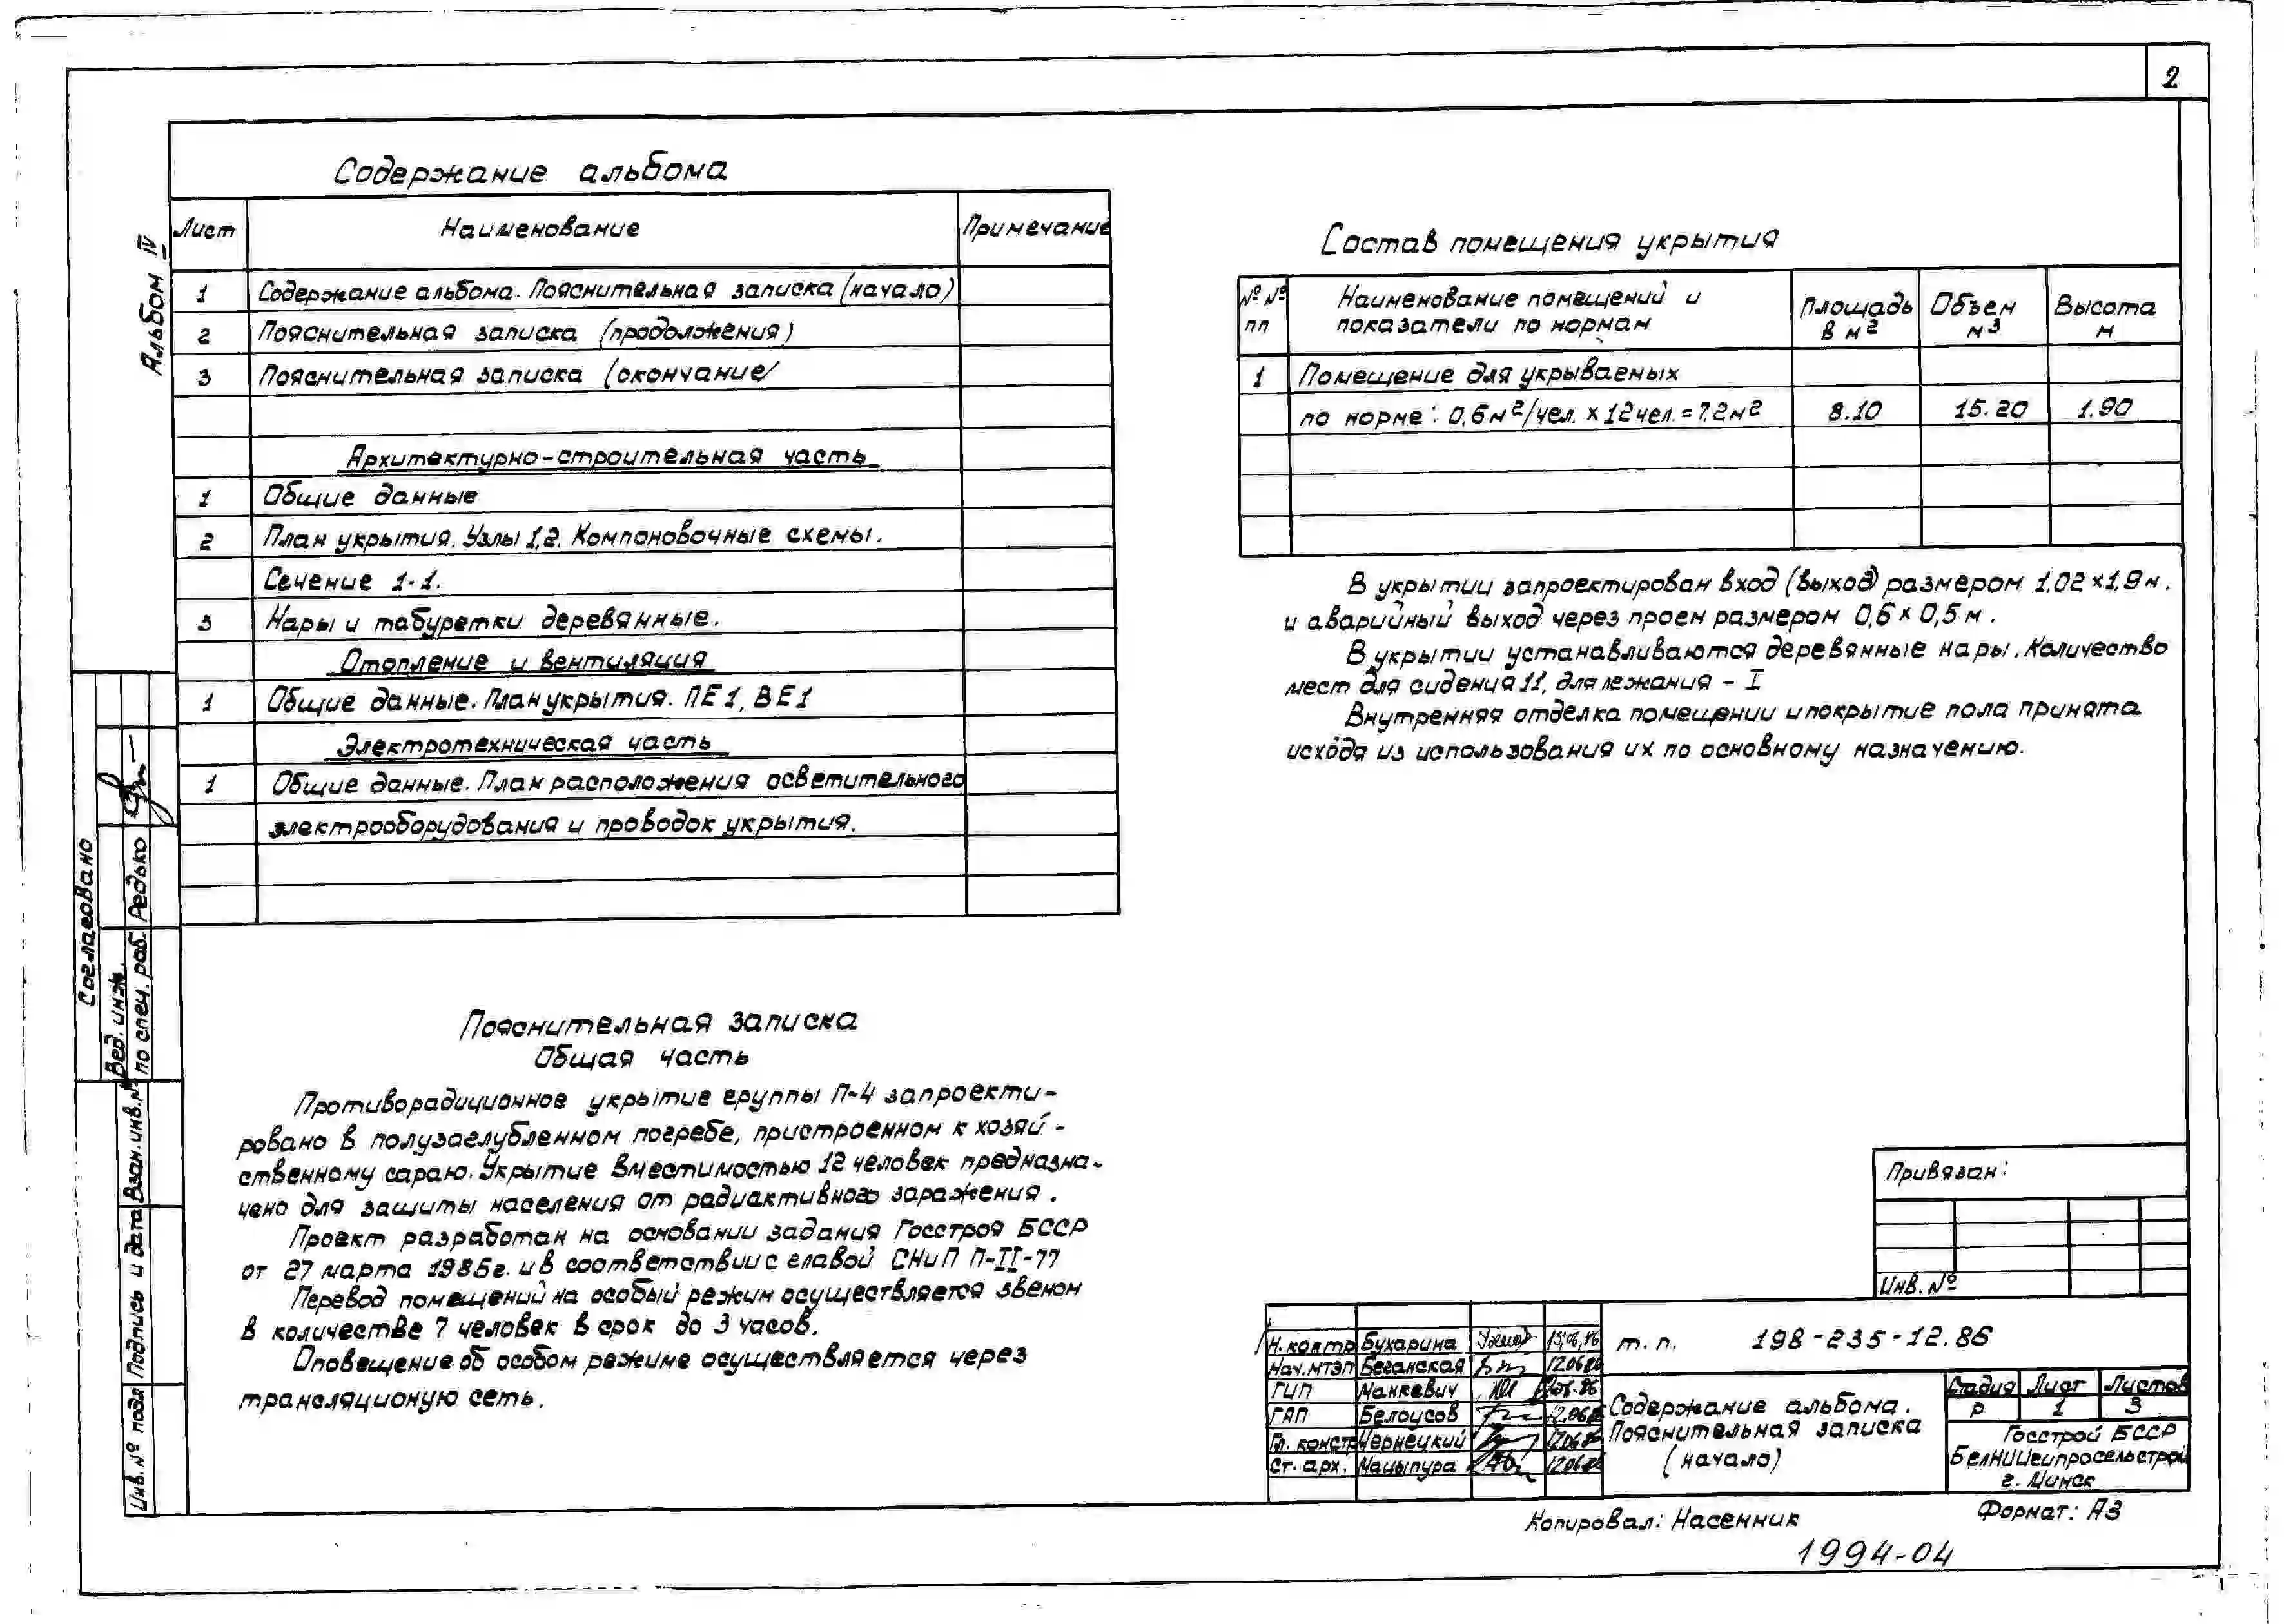 2
Альбом IV
Содержание альбома
Лист Наименование Примечание
1 Содержание альбома. Пояснительная записка (начало)
2 Пояснительная записка (продолжения)
3 Пояснительная записка (окончание/
Архитектурно-строительная часть
1 Общие данные
2 План укрытия. Узлы 1,2. Компоновочные схемы.
Сечение 1-1.
3 Нары и табуретки деревянные.
Отопление и вентиляция
1 Общие данные. План укрытия. ПЕ1, ВЕ1
Электротехническая часть
1 Общие данные. План расположения осветительного
электрооборудования и проводок укрытия.
Пояснительная записка
Общая часть
Противорадиционное укрытие группы П-4 запроекти-
ровано в полузаглубленном погребе, пристроенном к хозяй-
ственному сараю. Укрытие вместимостью 12 человек предназна-
чено для защиты населения от радиактивного заражения.
Проект разработан на основании задания Госстроя БССР
от 27 марта 1986г. и в соответствии с главой СНиП П-II-77
Перевод помещений на особый режим осуществляется звеном
в количестве 7 человек в срок до 3 часов.
Оповещение об особом режиме осуществляется через
трансляционую сеть.
Состав помещения укрытия
№№ пп Наименование помещений и показатели по нормам Площадь в м2 Объем м3 Высота м
1 Помещение для укрываемых
по норме: 0,6м2/чел. х 12 чел. = 7.2м2 8.10 15.20 1.90
В укрытии запроектирован вход (выход) размером 1,02×1,9м.
и аварийный выход через проем размером 0,6×0,5м.
В укрытии устанавливаются деревянные нары. Количество
мест для сидения 11, для лежания - I
Внутренняя отделка помещении и покрытие пола принята
исходя из использования их по основному назначению.
Согласовано
Вед. инж.
по спец. раб. Редько
Взам. инв. №
Подпись и дата
Инв. № подл
Привязан:
Инв. №
Н. контр Бухарина 13,06,86
Нач. МТЭП Беганская 12.06.86
ГИП Манкевич
ГАП Белоусов 12.06.86
Гл. констр Чернецкий 12.06.86
Ст. арх. Мацыпура 12.06.86
т.п. 198-235-12.86
Содержание альбома.
Пояснительная записка
(начало)
Стадия Лист Листов
Р 1 3
Госстрой БССР
БелНИИгипросельстрой
г. Минск
Копировал: Насенник
Формат: А3
1994-04